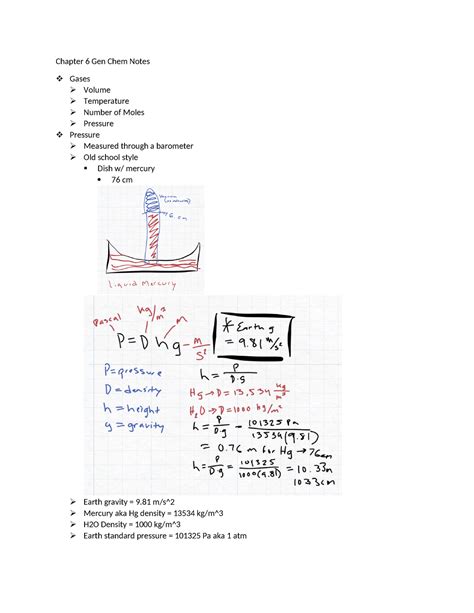 Chapter 6 Gen Chem Notes
❖ Gases
➢ Volume
➢ Temperature
➢ Number of Moles
➢ Pressure
❖ Pressure
➢ Measured through a barometer
➢ Old school style
▪ Dish w/ mercury
• 76 cm
Vacuum
cm
Liquid Mercury
Pascal kg/ m
P = D h g - m/s²
* Earth g
= 9.81 m/s²
P = pressure
D = density
h = height
g = gravity
h = P/D·g
Hg → D = 13,534 kg/m³
H₂O → D = 1000 kg/m³
h = P/D·g = 101325 Pa/13534(9.81)
= 0.76 m for Hg → 76cm
h = P/Dg = 101325/1000(9.81) = 10.33m
1033cm
➢ Earth gravity = 9.81 m/s^2
➢ Mercury aka Hg density = 13534 kg/m^3
➢ H2O Density = 1000 kg/m^3
➢ Earth standard pressure = 101325 Pa aka 1 atm